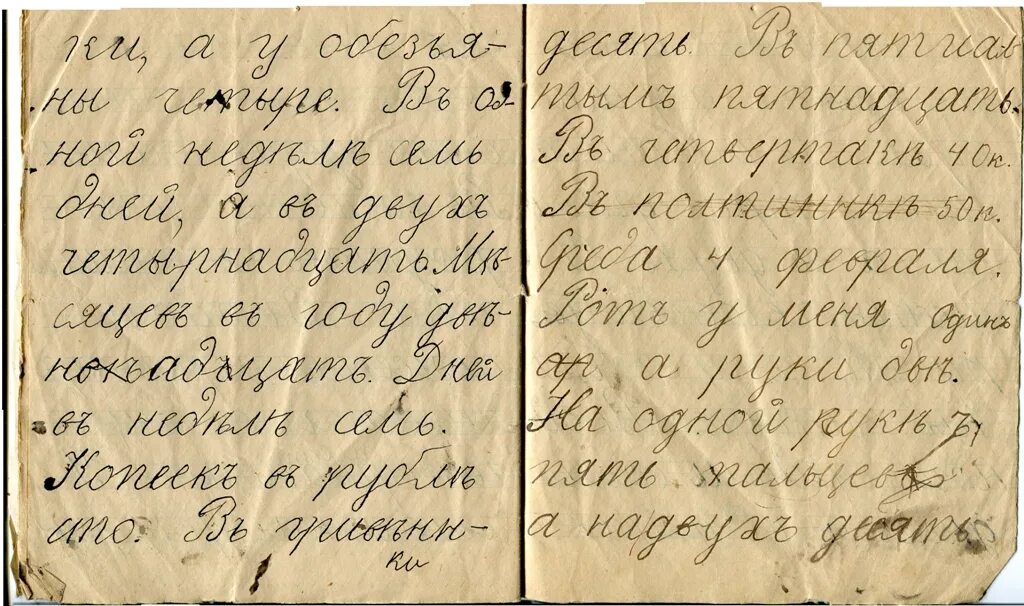 ки, а у обезья-
ны четыре. Въ од-
ной недѣлѣ семь
дней, а въ двухъ
четырнадцать. Мѣ-
сяцевъ въ году двѣ-
надцать. Дней
въ недѣлѣ семь.
Копеекъ въ рублѣ
сто. Въ гривенни-
ки
десять. Въ пятиал-
тымъ пятнадцать.
Въ четвертакѣ 40к.
Въ полтинникѣ 50к.
Среда 4 февраля.
Ротъ у меня одинъ
а руки двѣ.
На одной рукѣ
пять пальцевъ
а надвухъ десять.